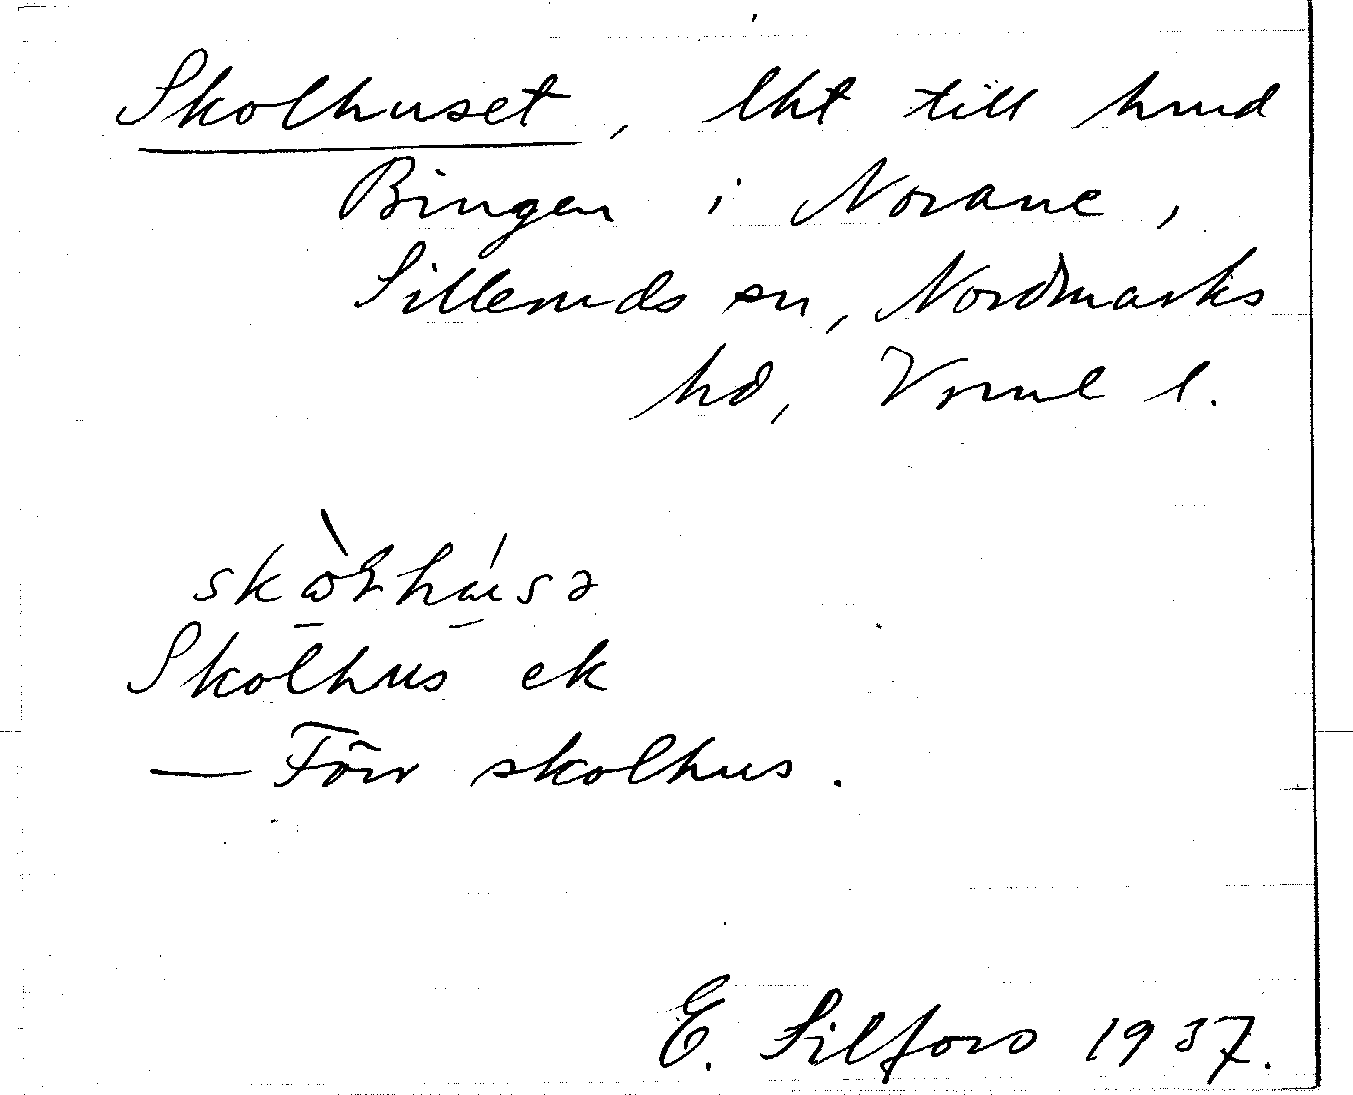 Skolhuset, lht till hmd
Bingen i Norane,
Silleruds sn, Nordmarks
hd, Vrml l.
skòłhúsə
Skolhus ek
— Förr skolhus.
E. Silfors 1937.